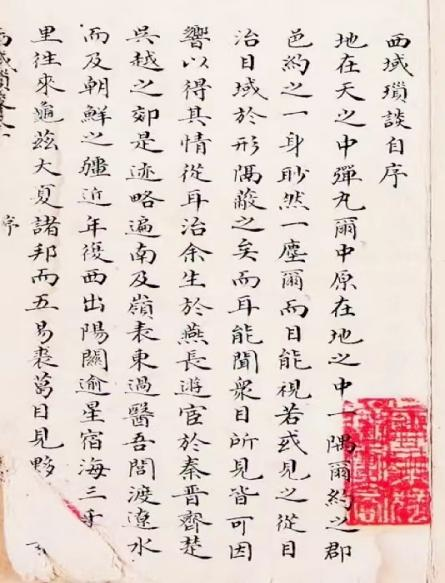 西域瑣談自序
地在天之中彈丸爾中原在地之中一隅爾約之郡
邑約之一身眇然一塵爾而目能視若或見之從目
治目域於形隅蔽之矣而耳能聞衆目所見皆可因
響以得其情從耳治余生於燕長遊宦於秦晉齊楚
吳越之郊是迹略遍南及嶺表東過醫吾閭渡遼水
而及朝鮮之疆近年復西出陽關逾星宿海三千
里往來龜茲大夏諸邦而五易裘葛目見夥
序